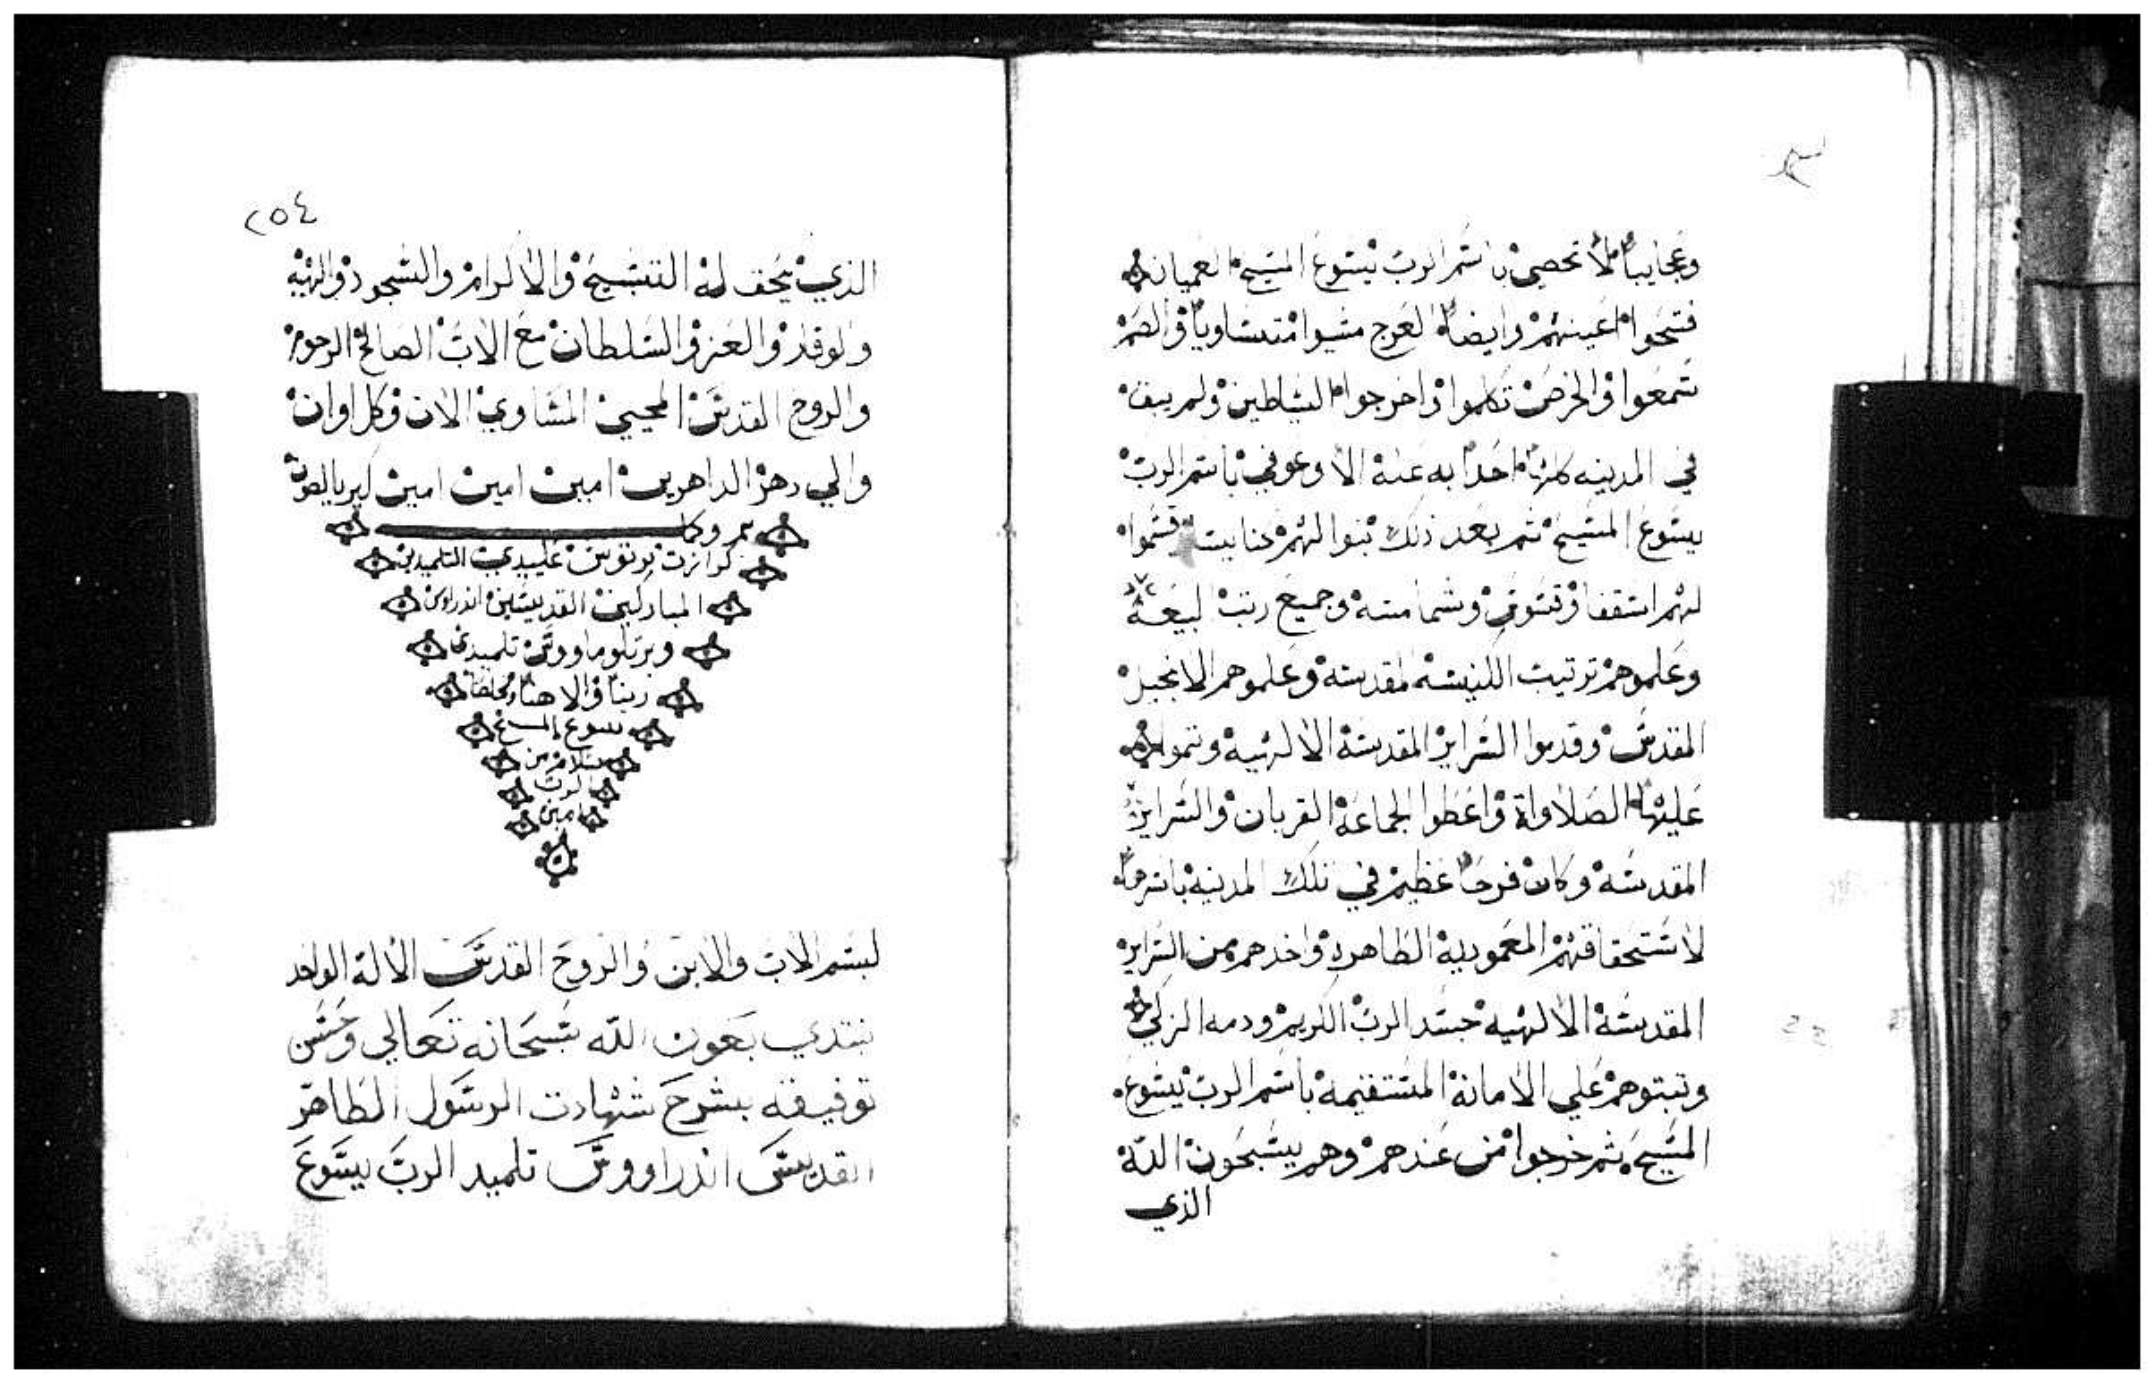 وعجايباً لا تحصي باسم الرب يسوع المسيح العميان
فتحوا اعينهم وايضاً العرج مشيوا متساوياً والصم
سمعوا والخرص تكلموا واخرجوا الشاطين ولم يبق
في المدينه كلها احداً به عنه الا وعوفي باسم الرب
يسوع المسيح ثم بعد ذلك بنوا لهم كنايسا وقسموا
لهم اسقفا وقسوس وشمامسه وجميع رتب البيعه
وعلموهم ترتيب الكنيسه المقدسه وعلموهم الانجيل
المقدس وقدموا السراير المقدسة الالهيه وتموا
عليها الصلاواة واعطوا الجماعة القربان والسراير
المقدسه وكان فرحاً عظيم في تلك المدينه باسرها
لاستحقاقهم المعموديه الطاهره واخدهم من السراير
المقدسة الالهيه جسد الرب الكريم ودمه الزكي
وتبتوهم علي الامانة المستقيمه باسم الرب يسوع
المسيح ثم خرجوا من عندهم وهم يسبحون الله
الذي
٢٥٤
الذي يحق له التسبيح والاكرام والسجود والهيبه
والوقار والعز والسلطان مع الاب الصالح الرحوم
والروح القدس المحيي المساوي الان وكل اوان
والي دهر الداهرين امين امين امين كيرياليصون
تم وكما
كرازت برتوس علييدي التلميدين
المباركين القديسين اندراوس
وبرتلوماووس تلميدي
ربنا والاهنا ومخلصنا
يسوع المسيح
بسلام من
الرب
امين
بسم الاب والابن والروح القدس الاله الواحد
نبتدي بعون الله سبحانه تعالي وحسن
توفيقه بشرح شهادت الرسول الطاهر
القديس اندراووس تلميد الرب يسوع